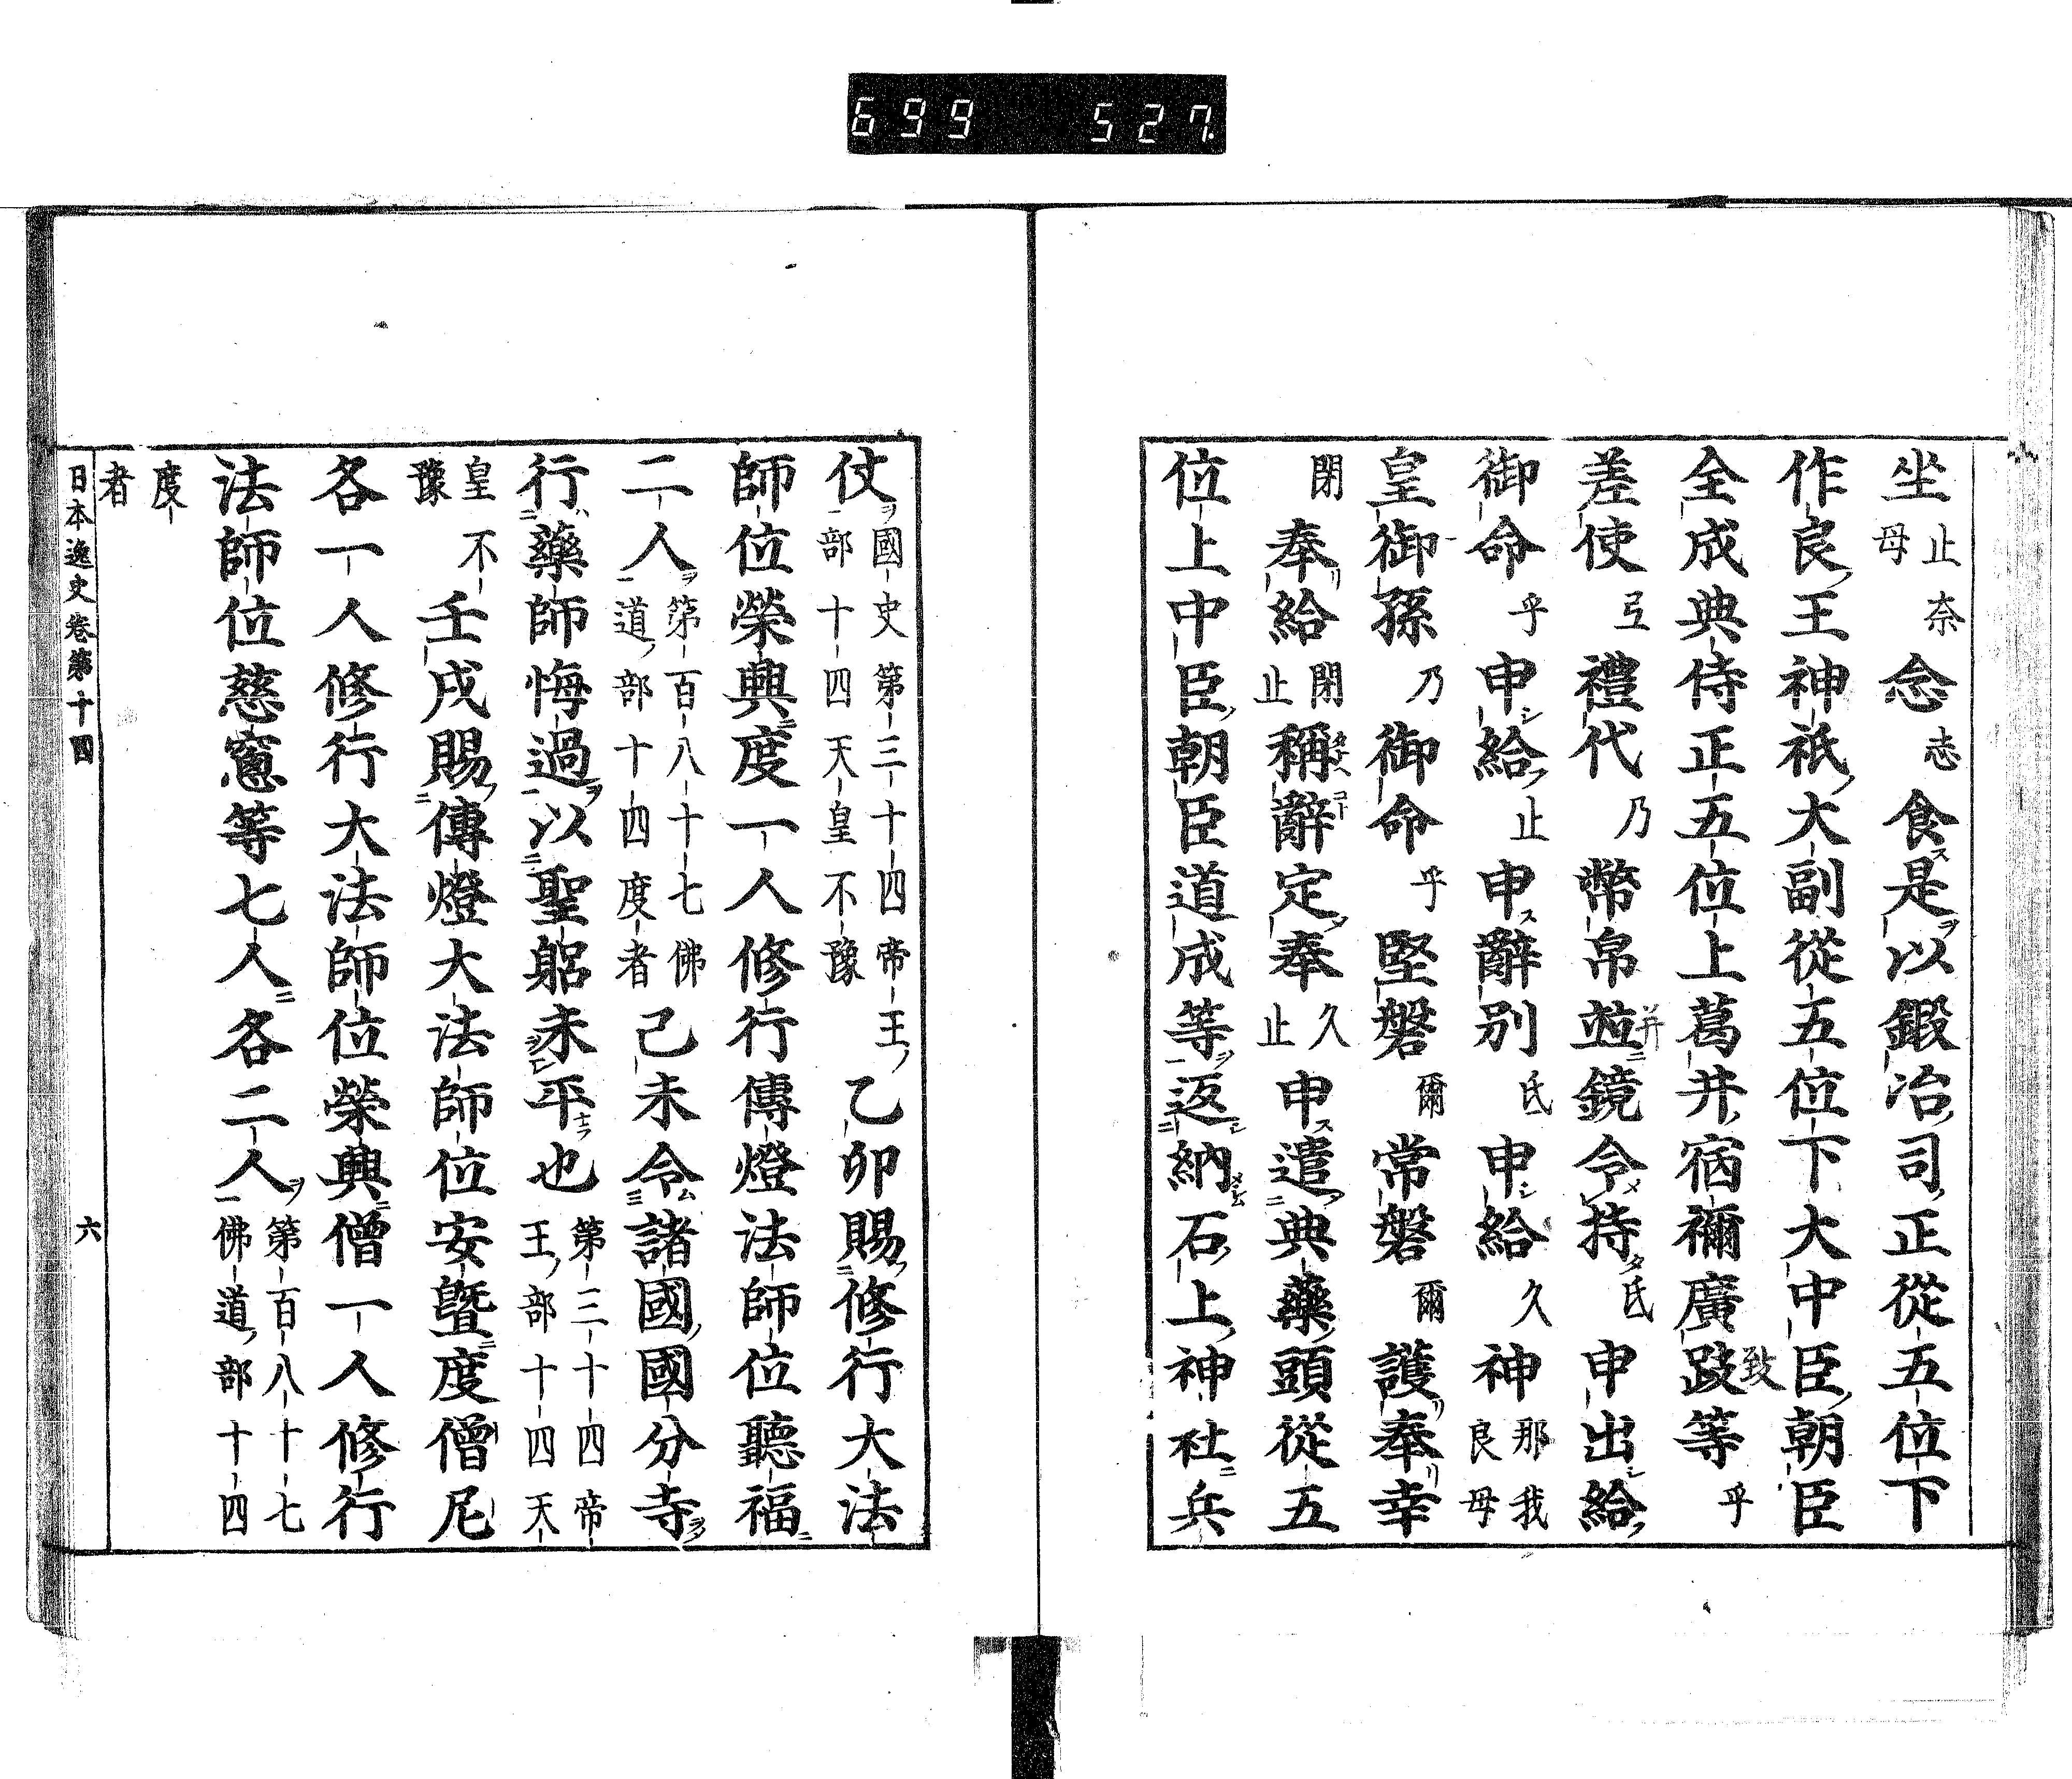 699 527.
坐止奈母念志食是以鍛冶司正從五位下
作良王神祇大副從五位下大中臣朝臣
全成典侍正五位上葛井宿禰廣跂致等乎
差使弖禮代乃幣帛並鏡令持氐申出給
御命乎申給止申辭別氐申給久神那我良母
皇御孫乃御命乎堅磐爾常磐爾護奉幸
閉奉給閉止稱辭定奉久止申遣典藥頭從五
位上中臣朝臣道成等返納石上神社兵
仗國史第三十四帝王部十四天皇不豫乙卯賜修行大法
師位榮興度一人修行傳燈法師位聽福
二人第百八十七佛道部十四度者己未令諸國國分寺
行藥師悔過以聖躬未平也第三十四帝王部十四天
皇不豫壬戌賜傳燈大法師位安曁度僧尼
各一人修行大法師位榮興僧一人修行
法師位慈窻等七人各二人第百八十七佛道部十四
度者
日本逸史卷第十四 六